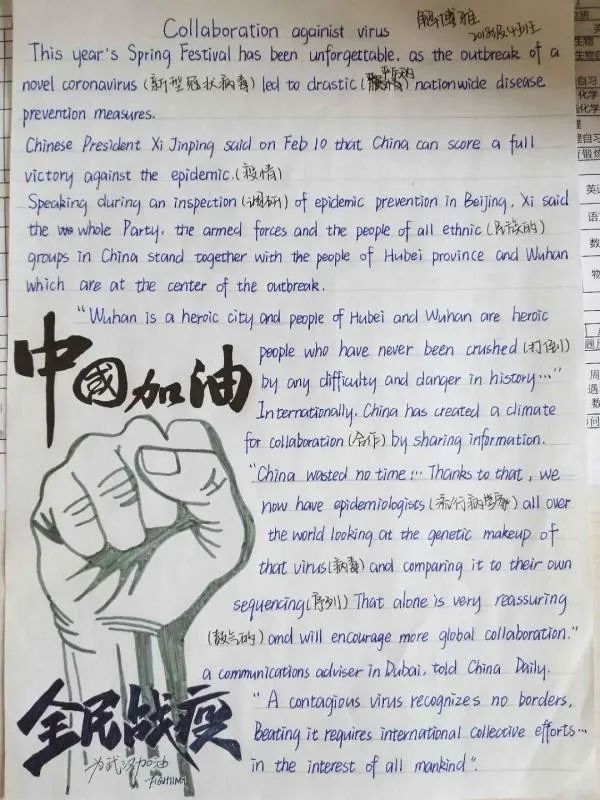 Collaboration againist virus
2018级4班
This year's Spring Festival has been unforgettable, as the outbreak of a
novel coronavirus (新型冠状病毒) led to drastic (严厉的) nationwide disease
prevention measures.
Chinese President Xi Jinping said on Feb 10 that China can score a full
victory against the epidemic.(疫情)
Speaking during an inspection (调研) of epidemic prevention in Beijing, Xi said
the whole Party, the armed forces and the people of all ethnic (民族的)
groups in China stand together with the people of Hubei province and Wuhan
which are at the center of the outbreak.
"Wuhan is a heroic city and people of Hubei and Wuhan are heroic
people who have never been crushed (打倒)
by any difficulty and danger in history..."
Internationally, China has created a climate
for collaboration (合作) by sharing information.
"China wasted no time... Thanks to that, we
now have epidemiologists (流行病学家) all over
the world looking at the genetic makeup of
that virus (病毒) and comparing it to their own
sequencing (序列) That alone is very reassuring
and will encourage more global collaboration."
a communications adviser in Dubai, told China Daily.
"A contagious virus recognizes no borders,
Beating it requires international collective efforts...
in the interest of all mankind".
中國加油
全民战疫
为武汉加油
FIGHTING